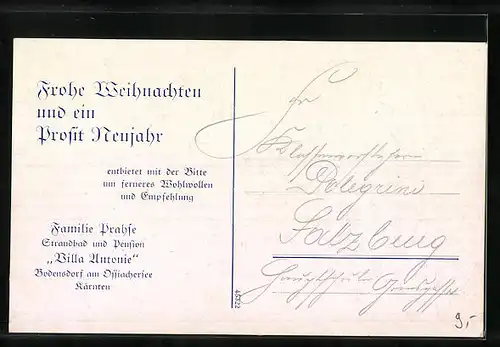 Frohe Weihnachten
und ein
Prosit Neujahr
entbietet mit der Bitte
um ferneres Wohlwollen
und Empfehlung
Familie Prahse
Strandbad und Pension
„Villa Antonie“
Bodensdorf am Ossiachersee
Kärnten
45722
Klassenvorsteherin
Pelegrini
Salzburg
Hauptschule
9,-